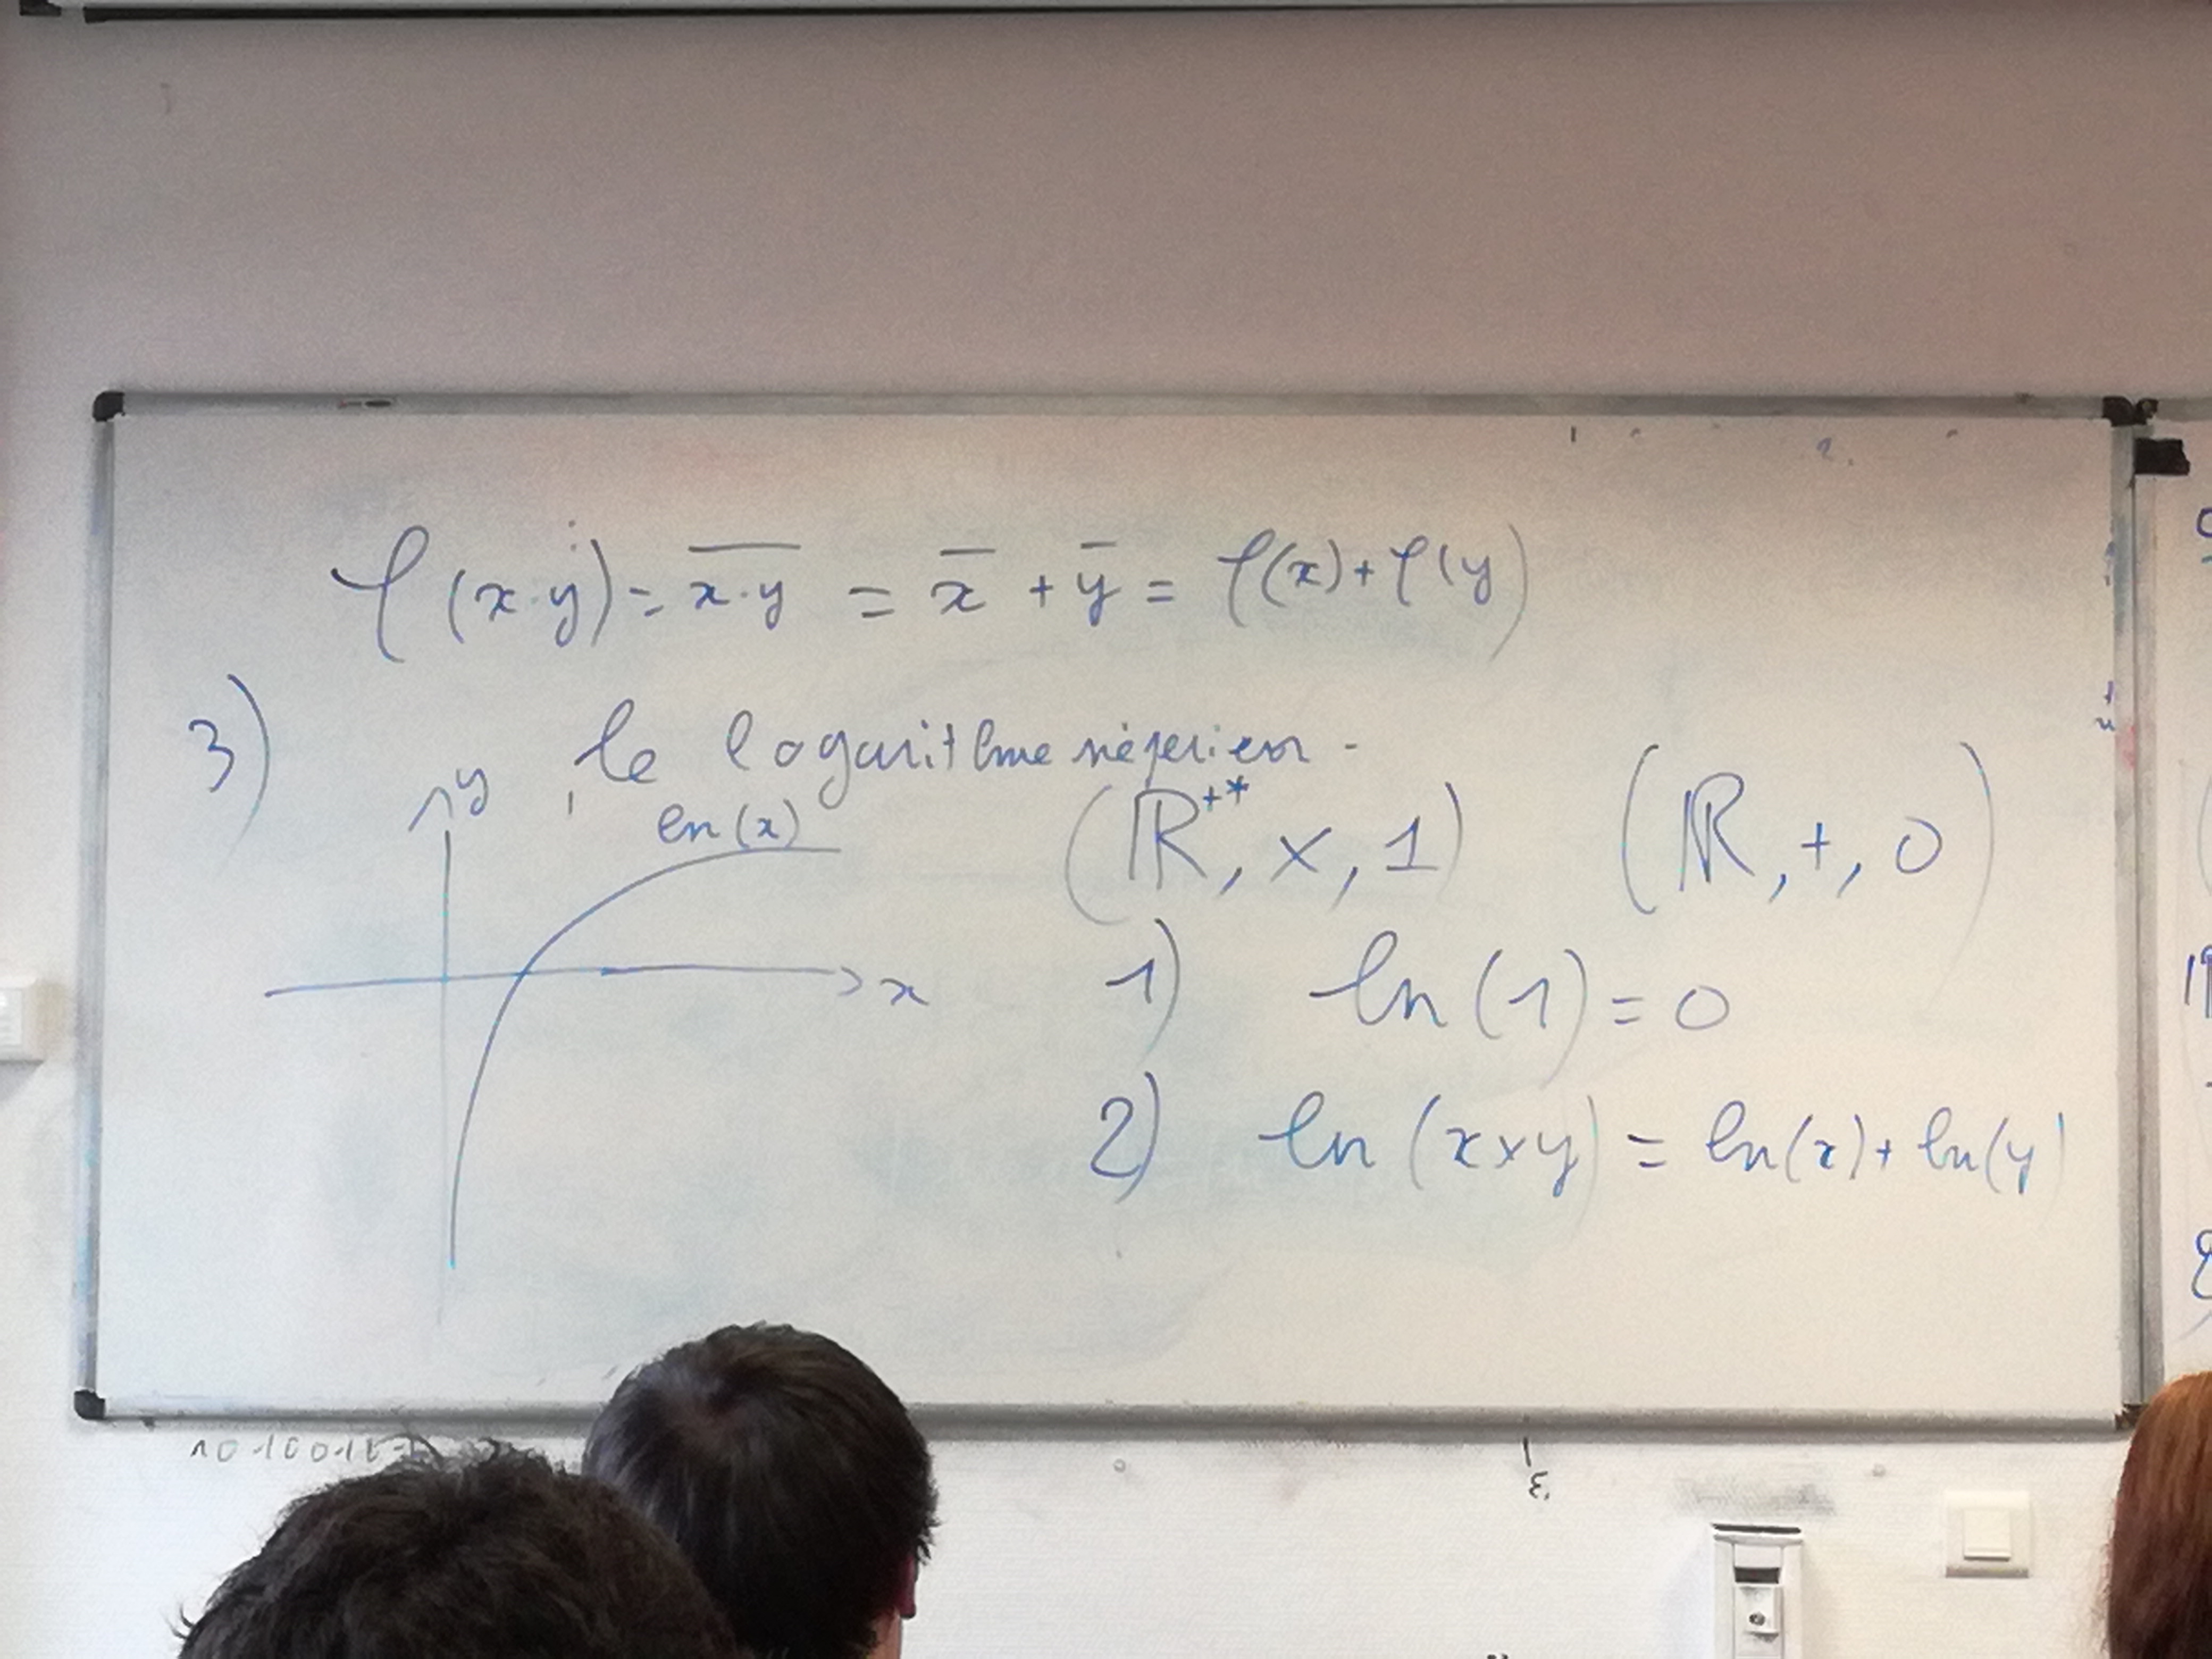 φ(x·y) = \overline{x·y} = \overline{x} + \overline{y} = φ(x) + φ(y)
3) le logarithme néperien.
y
ln(x)
x
(ℝ⁺*, ×, 1) (ℝ, +, 0)
1) ln(1) = 0
2) ln(x×y) = ln(x) + ln(y)